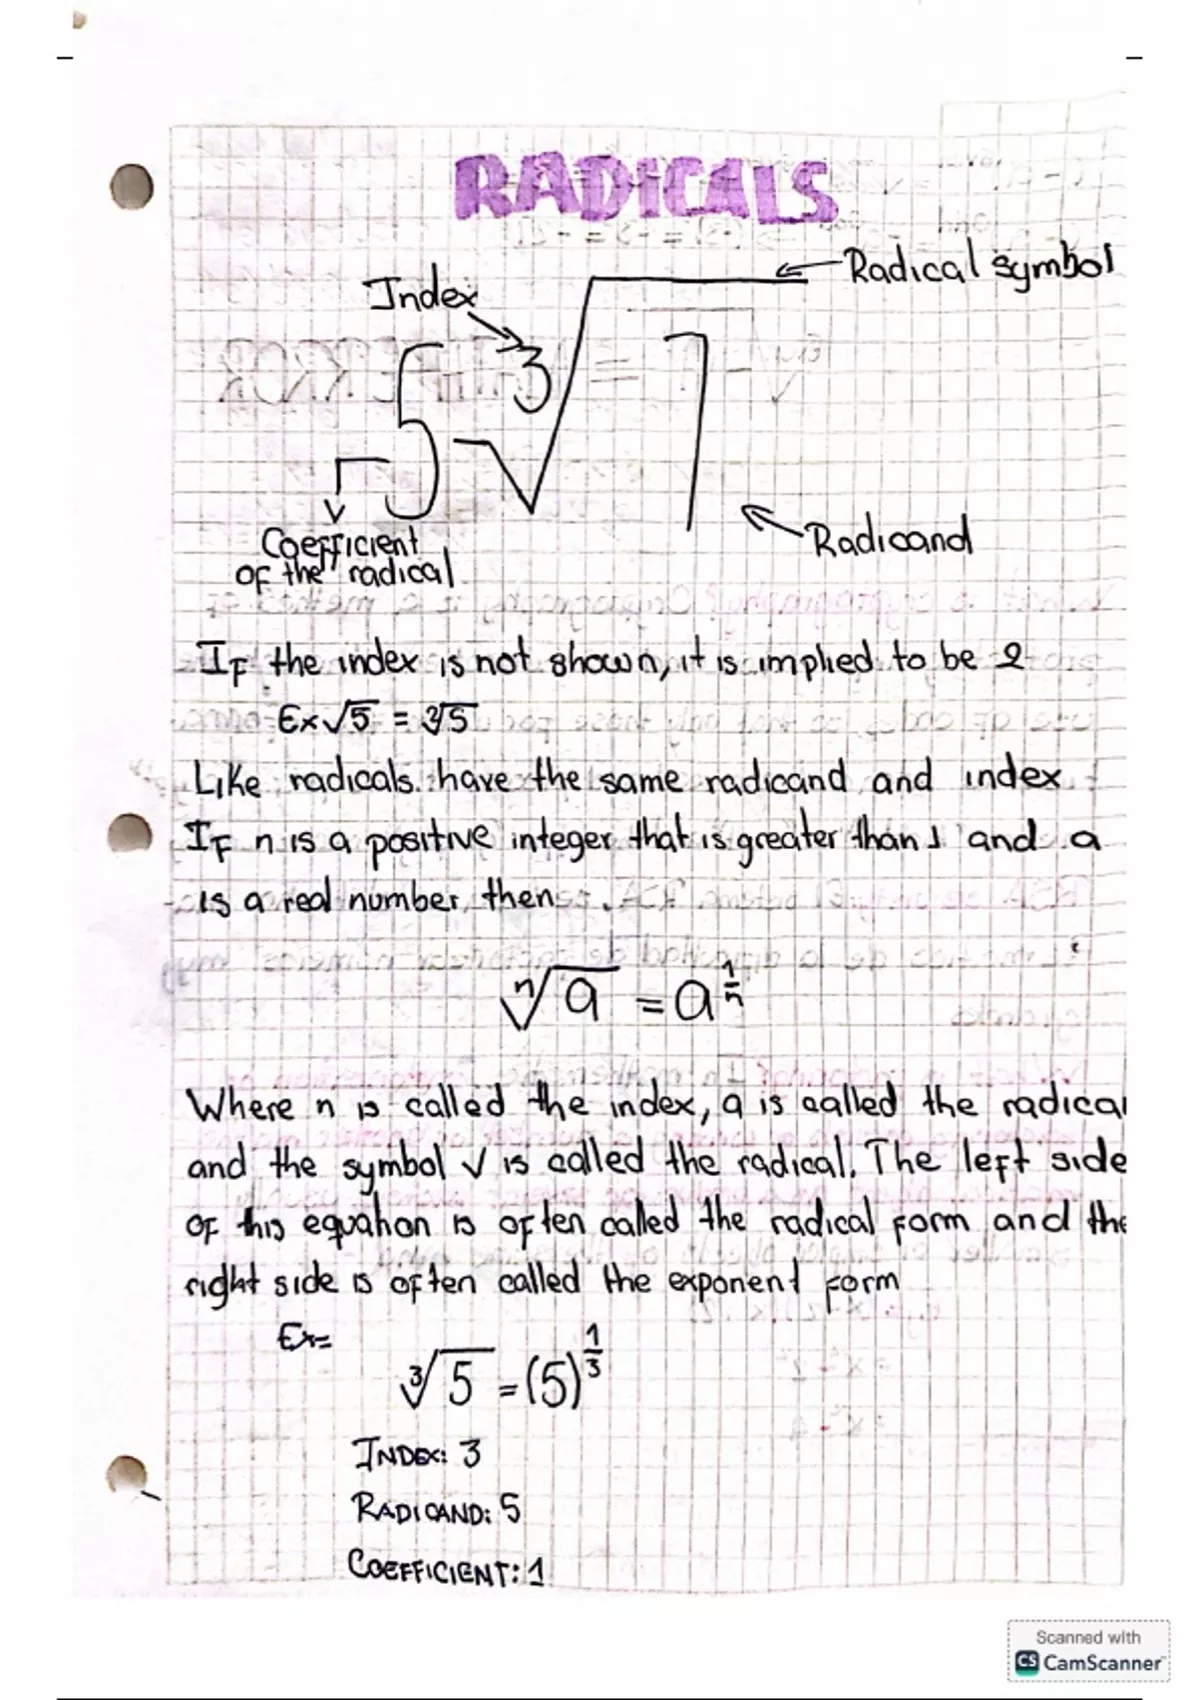 RADICALS
Radical symbol
Index
5 ∛7
Coefficient
of the radical
Radicand
If the index is not shown, it is implied to be 2
Ex √5 = ²√5
Like radicals have the same radicand and index
If n is a positive integer that is greater than 1 and a
is a real number then.
ⁿ√a = a^(1/n)
Where n is called the index, a is called the radica
and the symbol √ is called the radical. The left side
of this equation is often called the radical form and the
right side is often called the exponent form
Ex=
³√5 = (5)^(1/3)
INDEX: 3
RADICAND: 5
COEFFICIENT: 1
Scanned with
CS CamScanner